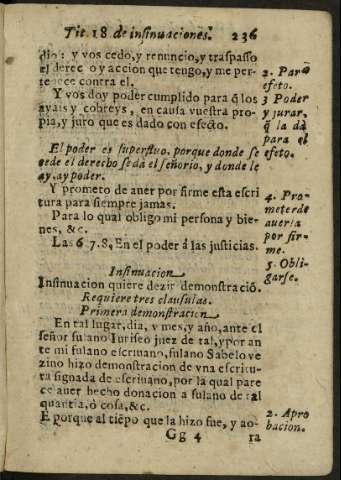 Tit. 18 de insinuaciones. 236
dio: y vos cedo, y renuncio, y traspasso
el derec o y accion que tengo, y me per-
tenece contra el.
2. Par
efeto.
Y vos doy poder cumplido para q̃ los
ayais y cobreys, en causa vuestra pro-
pia, y juro que es dado con efecto.
3 Poder
y jurar,
q̃ la dà
para el
efeto.
El poder es superfluo. porque donde se
cede el derecho se da el señorio, y donde le
ay, ay poder.
Y prometo de auer por firme esta escri
tura para siempre jamas.
4. Pro-
meter de
auerla
por fir-
me.
Para lo qual obligo mi persona y bie-
nes, &c.
Las 6 7. 8, En el poder á las justicias.
5. Obli-
garse.
Insinuacion
Insinuacion quiere dezir demostració.
Requiere tres clausulas.
Primera demonstracion
En tal lugar, dia, y mes, y año, ante el
señor fulano Iurisco juez de tal, y por an
te mi fulano escriuano, fulano Sabelo ve
zino hizo demonstracion de vna escritu-
ra signada de escriuano, por la qual pare
ce auer hecho donacion a fulano de tal
quantia, ò cosa, &c.
E porque al tiẽpo que la hizo fue, y ao-
2. Apro
bacion.
Gg 4 ra